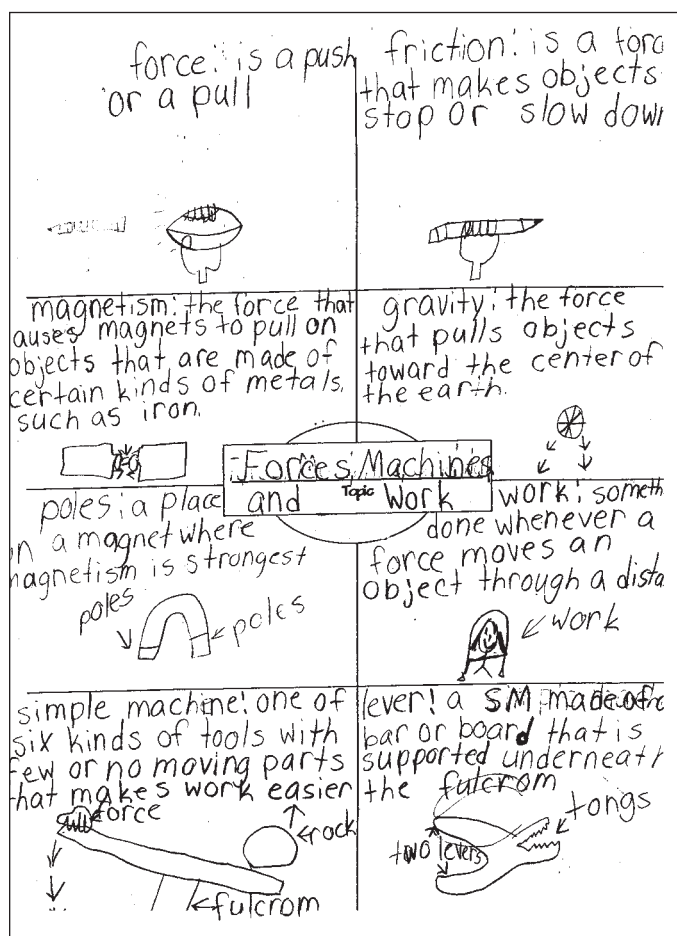 force: is a push
or a pull
friction: is a forc
that makes objects
stop or slow down
magnetism: the force that
auses magnets to pull on
objects that are made of
certain kinds of metals,
such as iron.
gravity: the force
that pulls objects
toward the center of
the earth.
Forces, Machines
and Topic Work
poles: a place
n a magnet where
magnetism is strongest
poles
poles
work: someth
done whenever a
force moves an
object through a dista
work
simple machine: one of
six kinds of tools with
few or no moving parts
that makes work easier
force
rock
fulcrom
lever: a SM made of
bar or board that is
supported underneath
the fulcrom
tongs
two levers